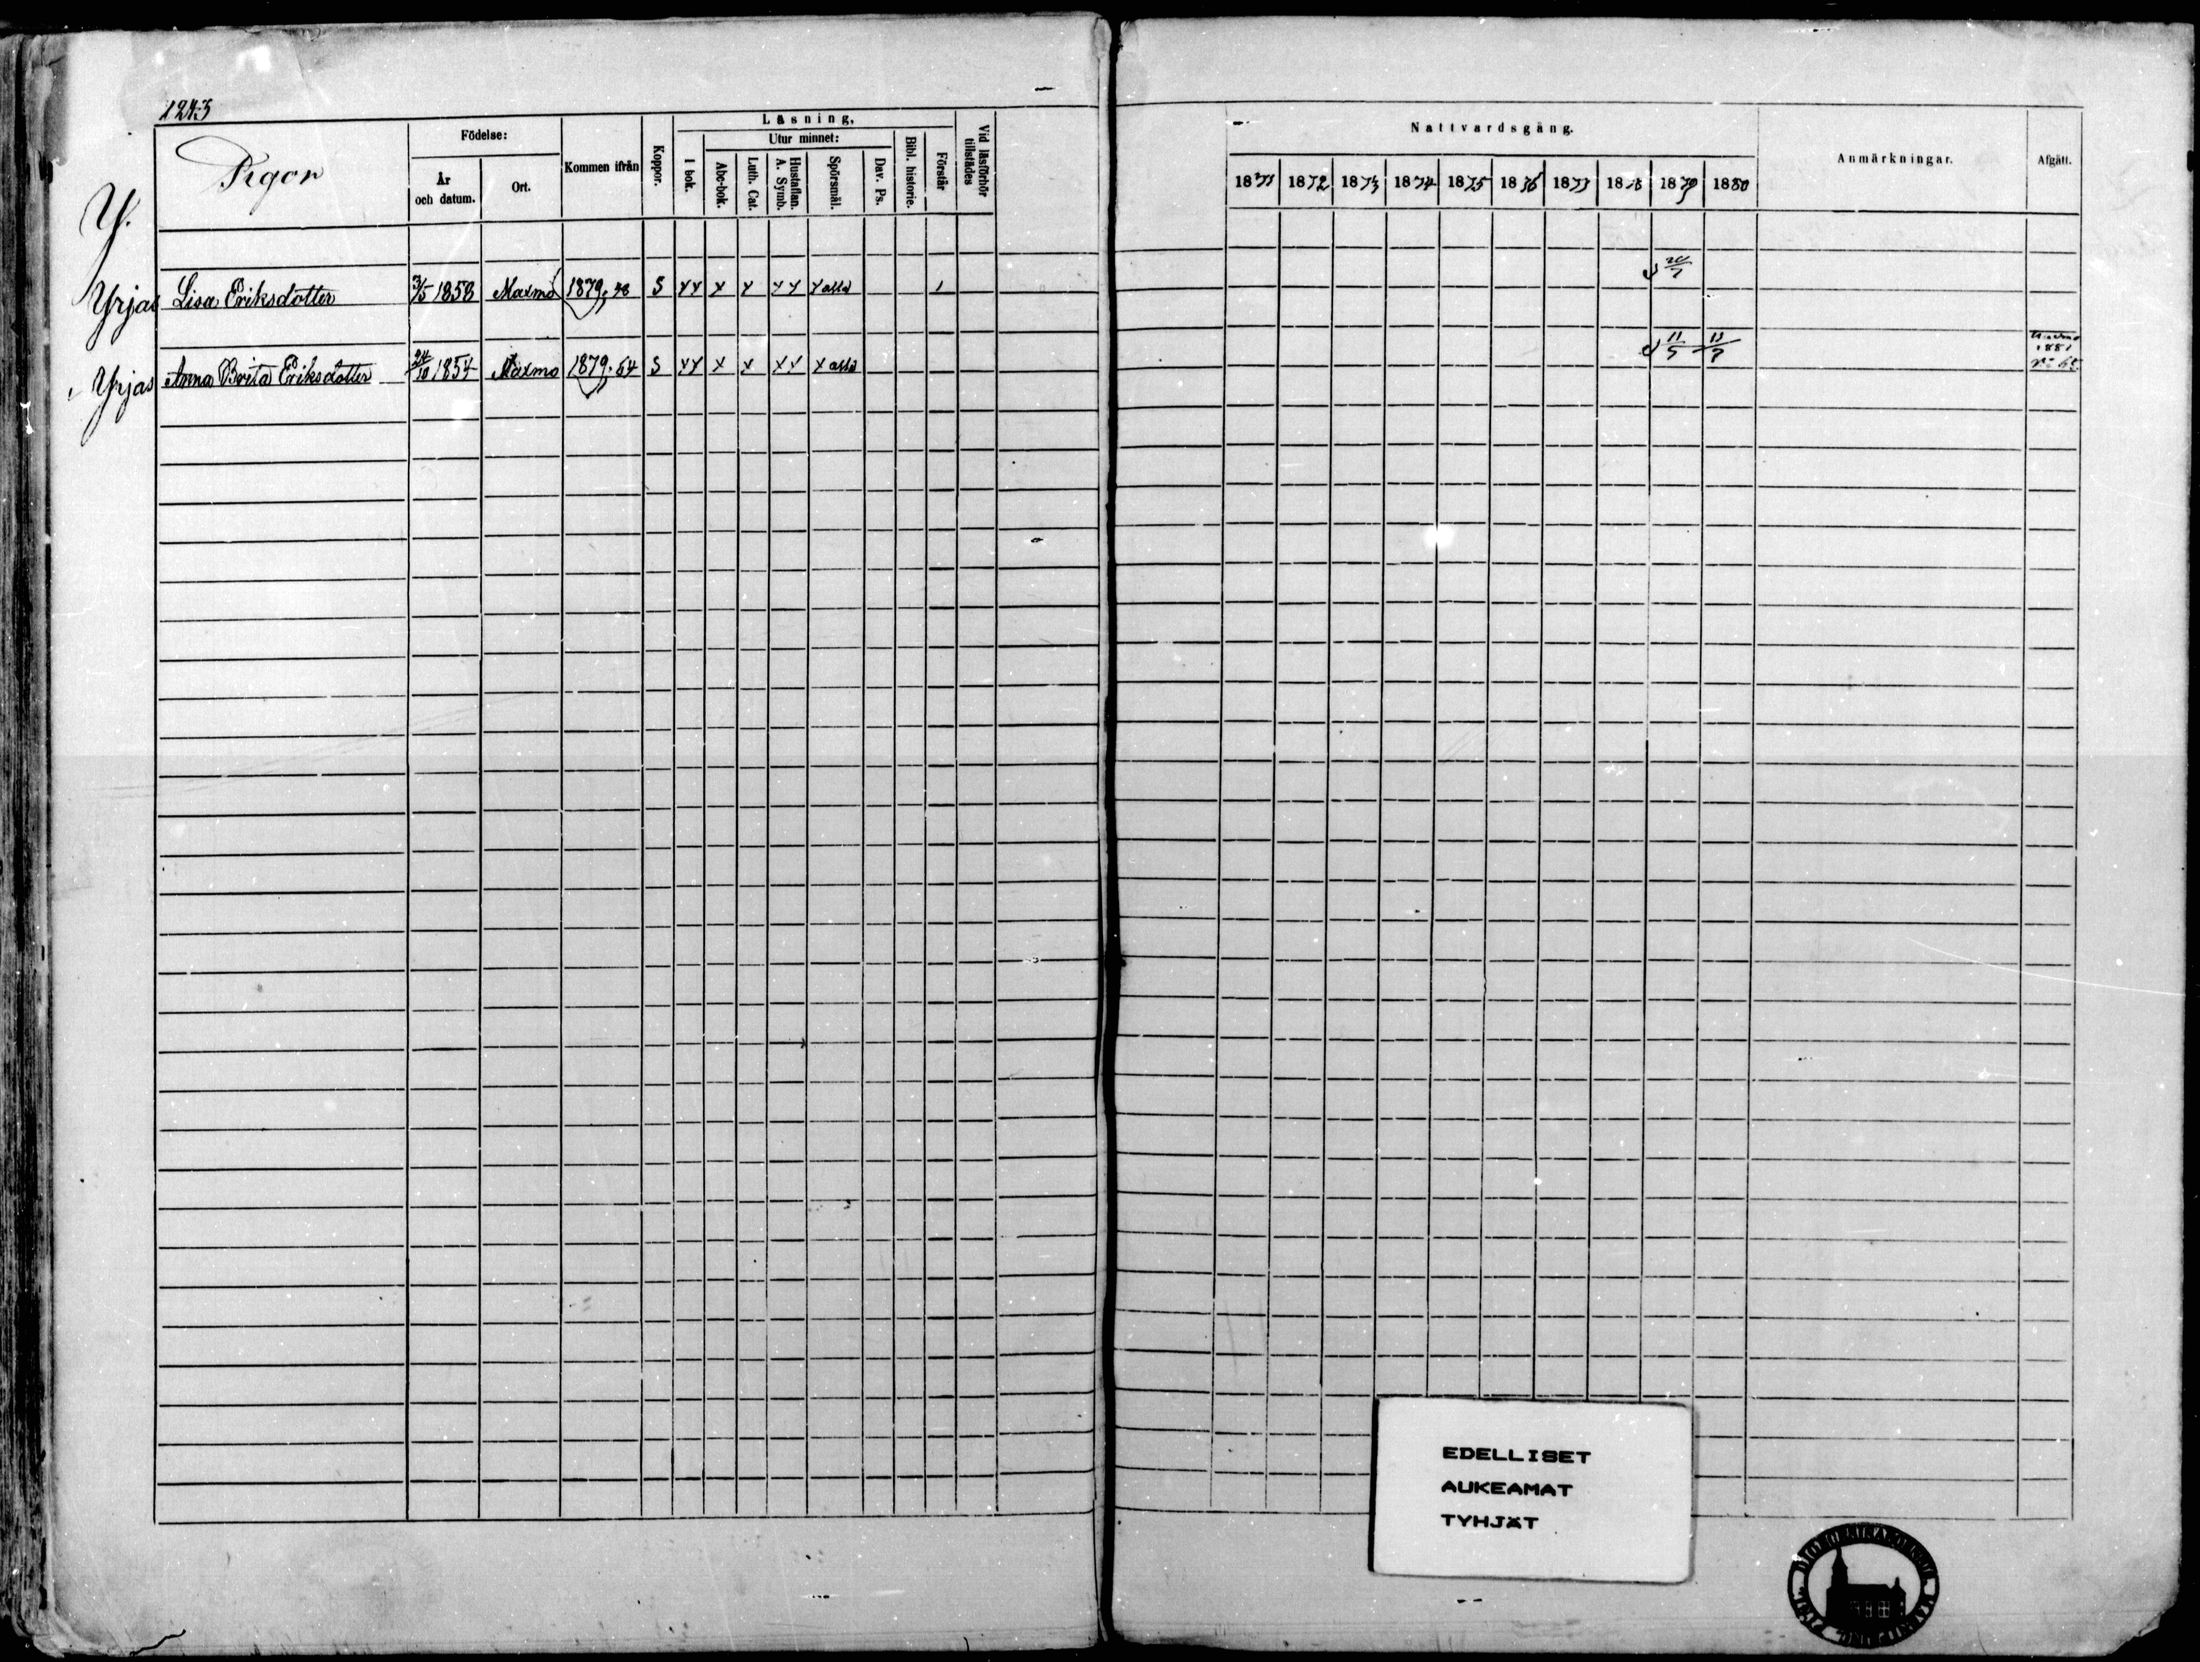 1243
Pigor
Födelse:
År och datum.
Ort.
Kommen ifrån
Koppor.
Läsning,
I bok.
Utur minnet:
Abc-bok.
Luth. Cat.
Hustaflan. A. Symb.
Spörsmål.
Dav. Ps.
Bibl. historie.
Förstår
Vid läsförhör tillstädes
Nattvardsgång.
1871 1872 1873 1874 1875 1876 1877 1878 1879 1880
Anmärkningar.
Afgått.
Y.
Yrjas Lisa Eriksdotter 3/5 1858 Maxmo 1879, 48 S alla 1 20/7
Yrjas Anna Brita Eriksdotter 24/10 1854 Maxmo 1879, 64 S alla 11/5 11/7 1881
EDELLISET
AUKEAMAT
TYHJÄT